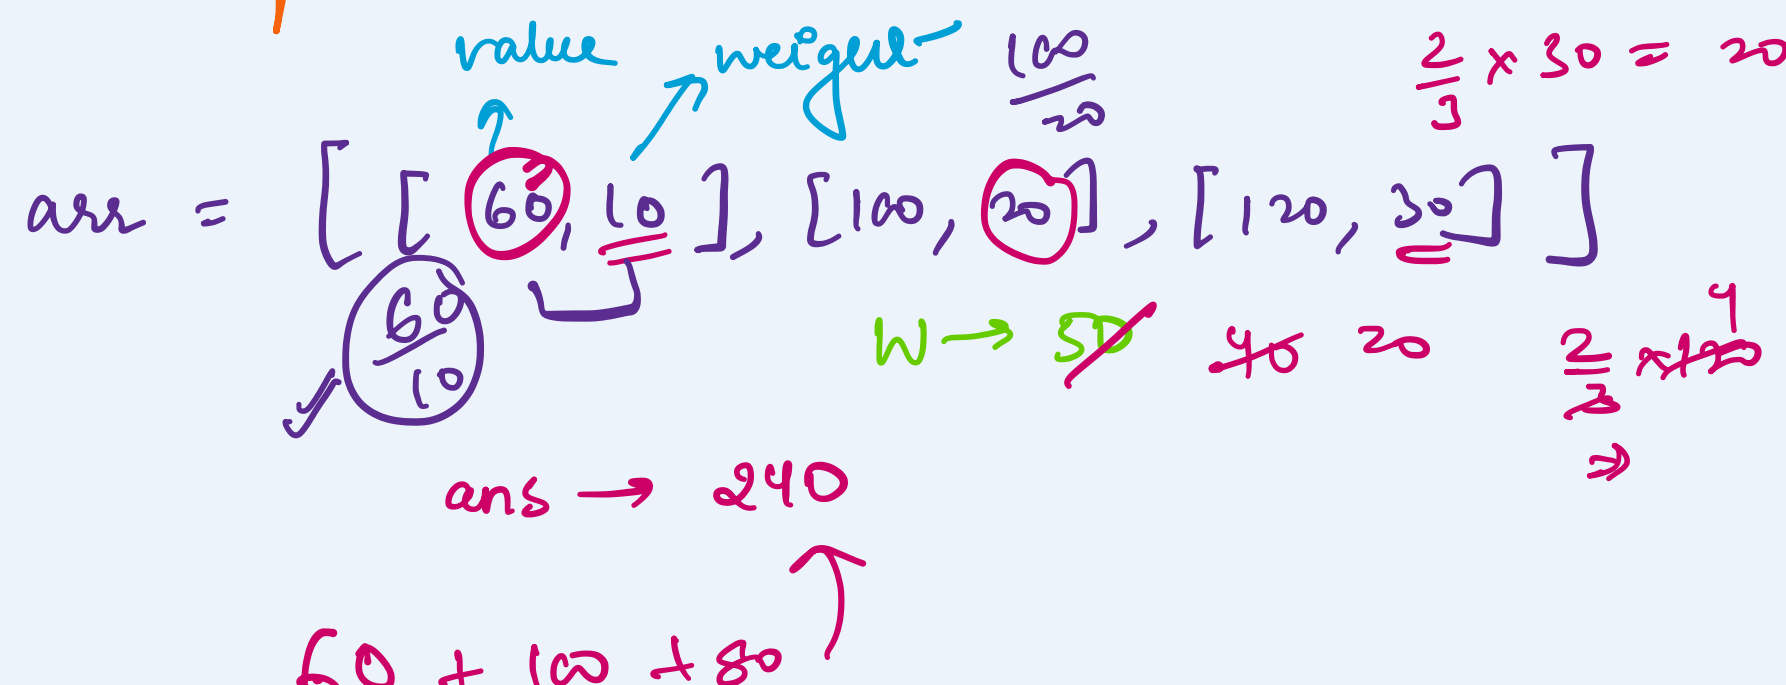 value weight 100/20 2/3 × 30 = 20
arr = [ [ 60, 10 ], [100, 20] , [120, 30] ]
60/10
W → 50 40 20 2/3 × 120 4
⇒
ans → 240
60 + 100 + 80